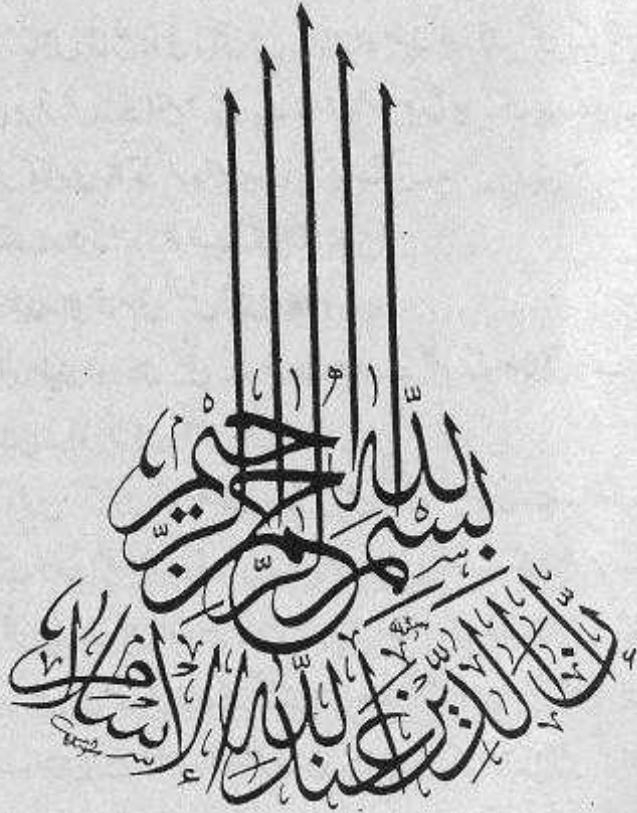 بسم الله الرحمن الرحيم
إن الدين عند الله الإسلام